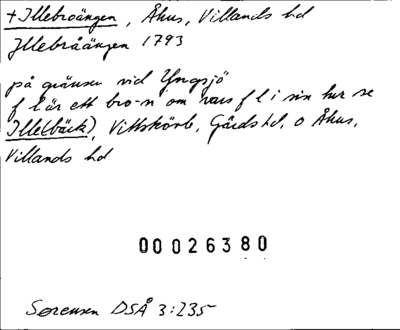 +Illebroängen, Åhus, Villands hd
Illebråängen 1793
på gränsen vid Yngsjö
f l är ett bro-n om vars f l i sin tur se
Ille(bäck), Vittskövle, Gärds hd, o Åhus,
Villands hd
00026380
Sørensen DSÅ 3:235